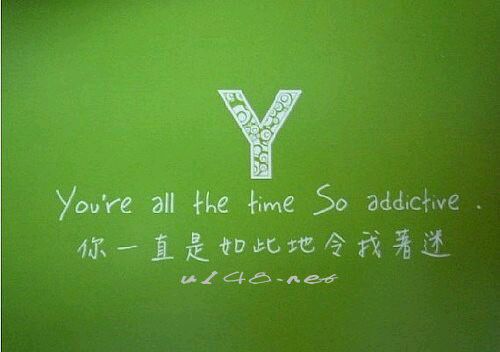 Y
You're all the time So addictive.
你一直是如此地令我著迷
u148.net